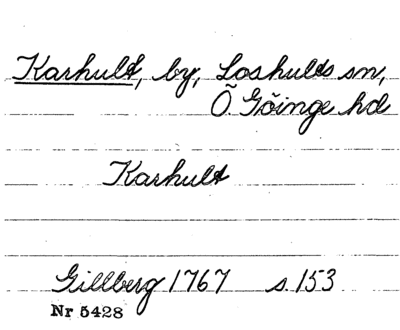 Karhult, by, Loshults sn,
Ö. Göinge hd
Karhult
Gillberg 1767 s. 153
Nr 5428